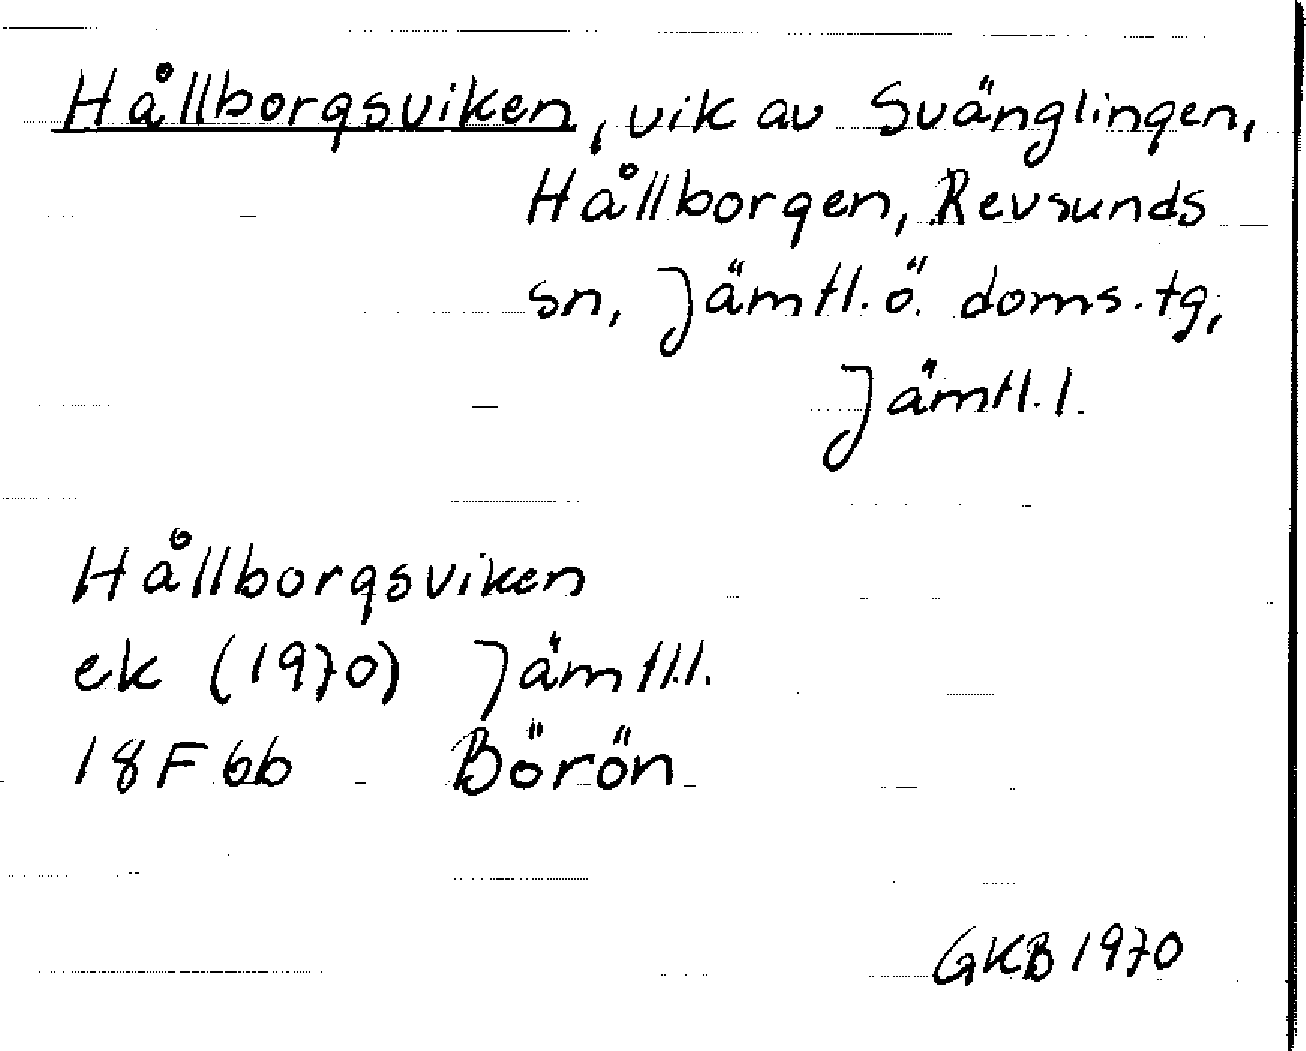 Hållborgsviken, vik av Svänglingen,
Hållborgen, Revsunds
sn, Jämtl. ö. doms. tg,
Jämtl. l.
Hållborgsviken
ek (1970) Jämtl.l.
18F6b Börön
GKB 1970